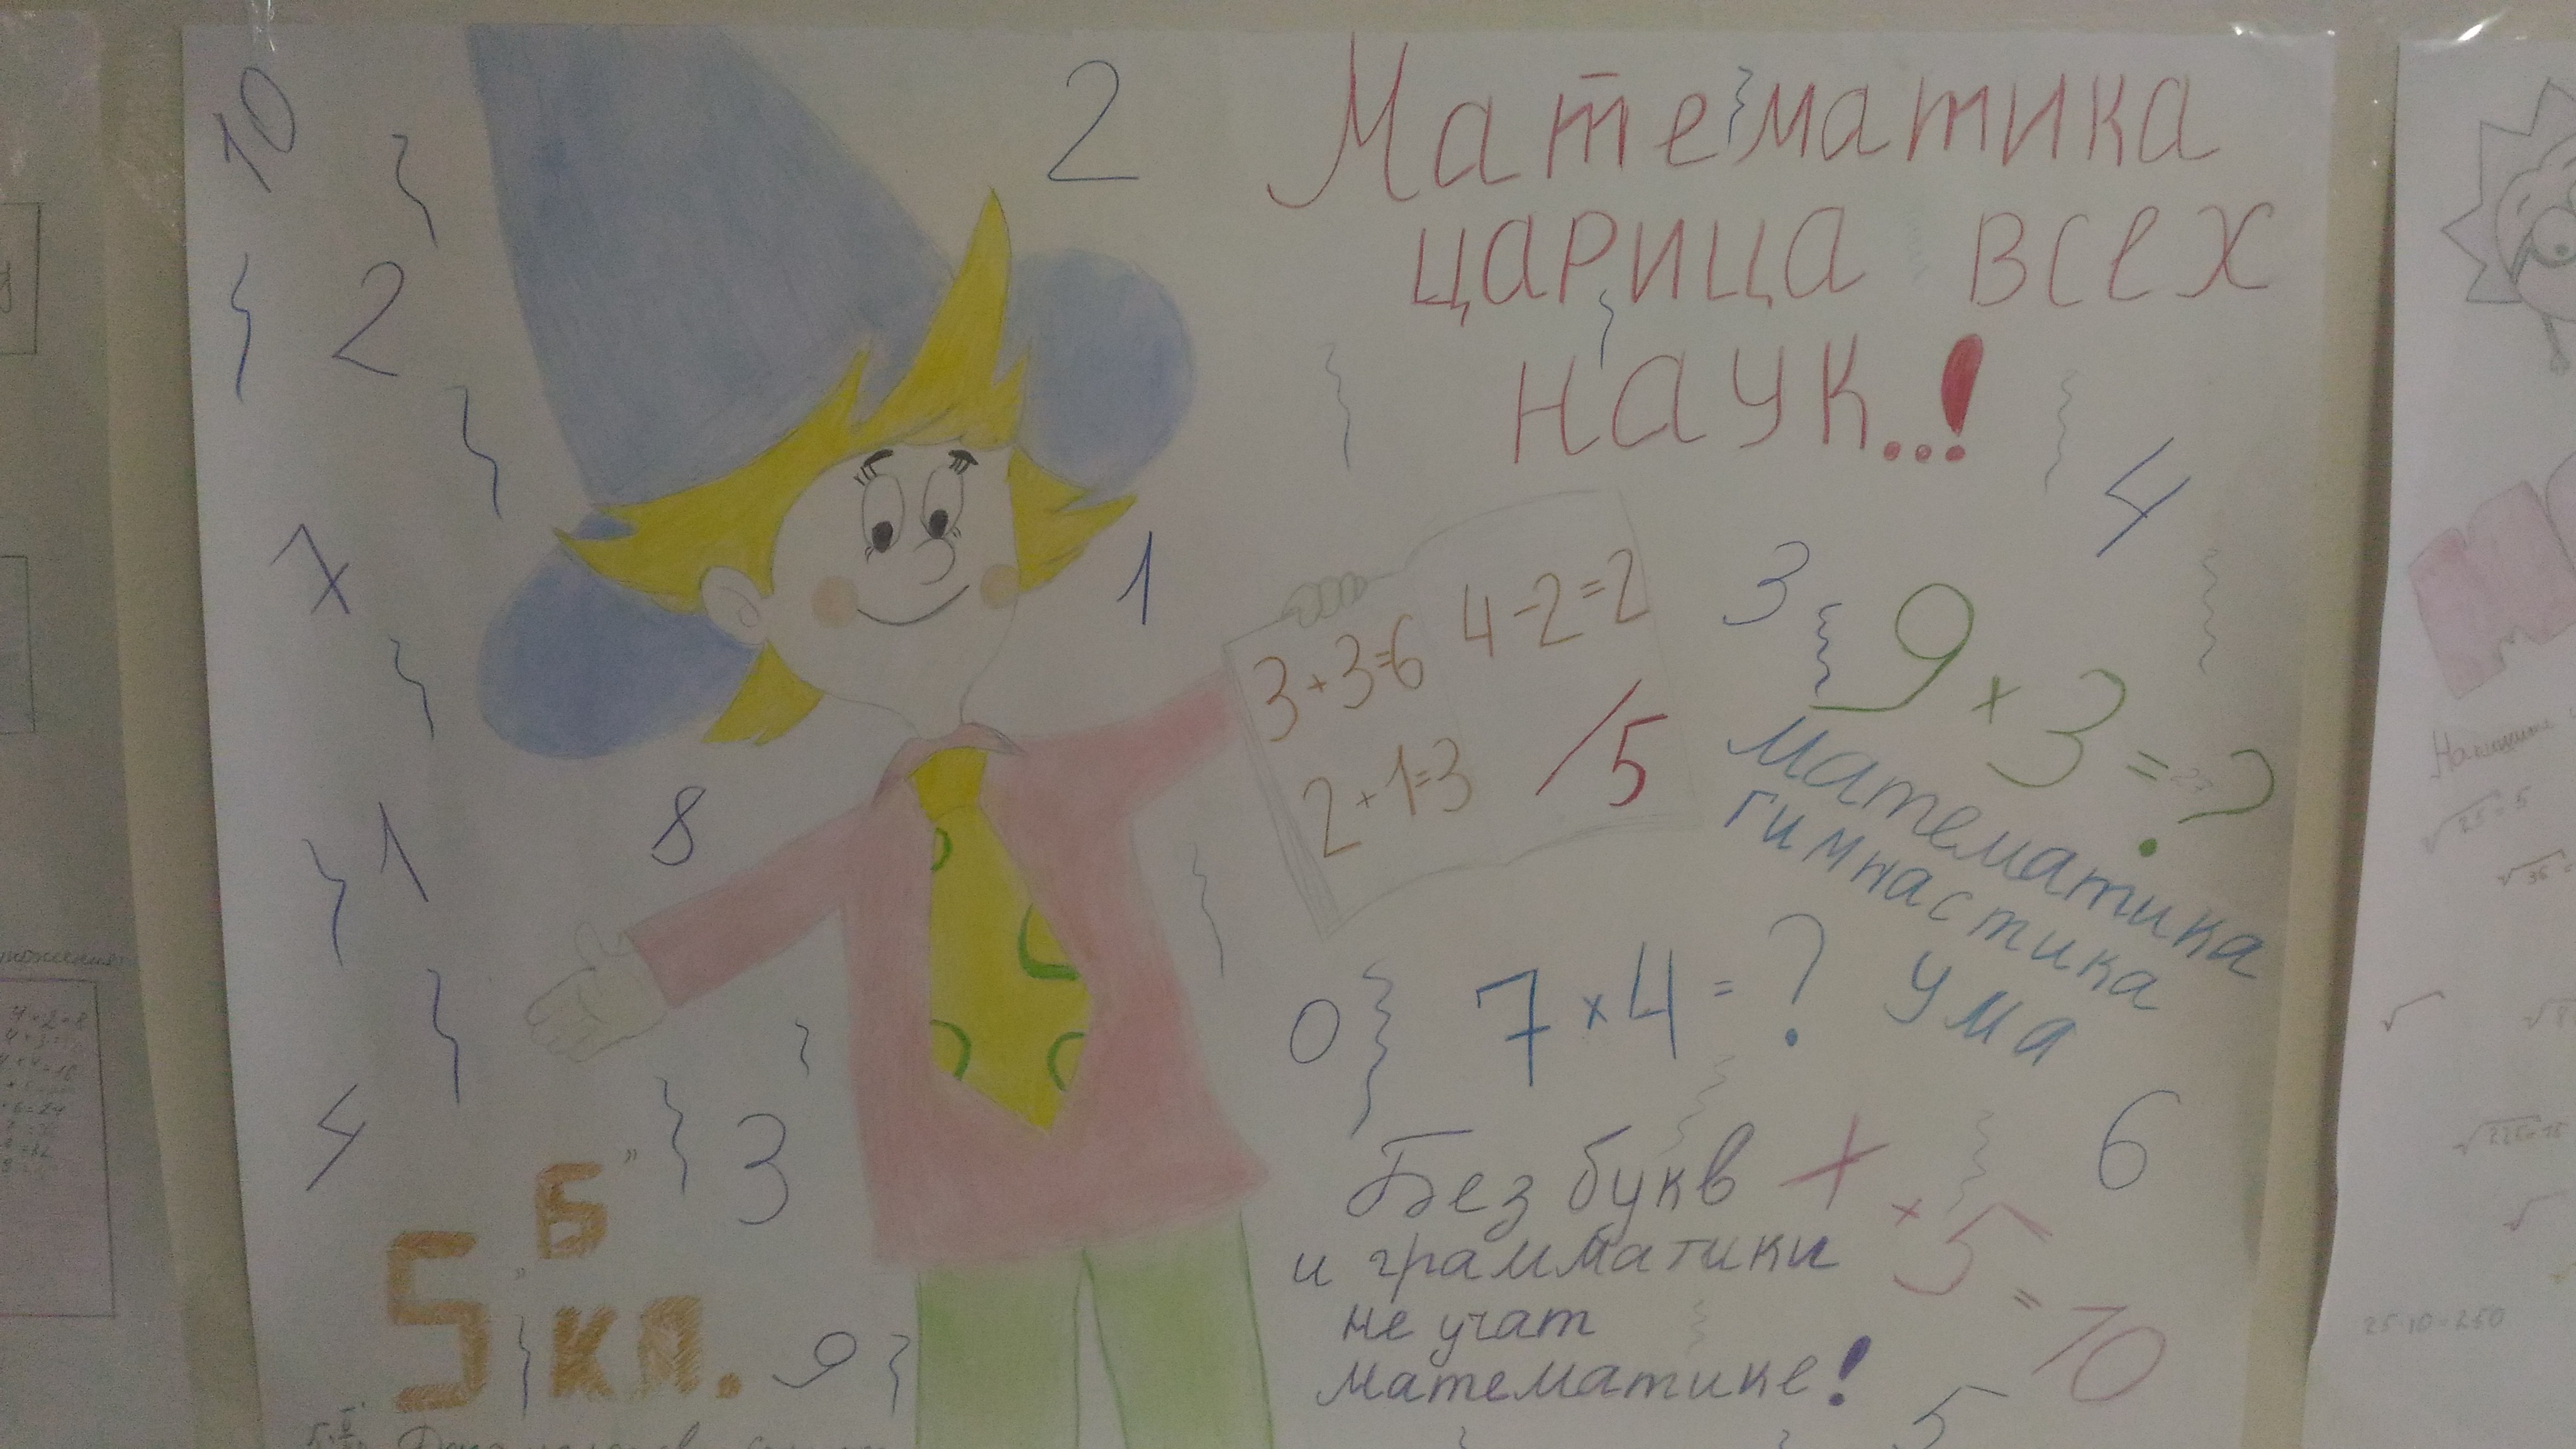 10
2
Математика
царица всех
наук..!
2
4
7
1
3
3+3=6 4-2=2
2+1=3 /5
9×3=?
математика
гимнастика
ума
1
8
0
7×4=?
4
3
6
Без букв
и грамматики
не учат
математике!
× 5 = 10
5 "Б" кл.
9
5
25·10=250